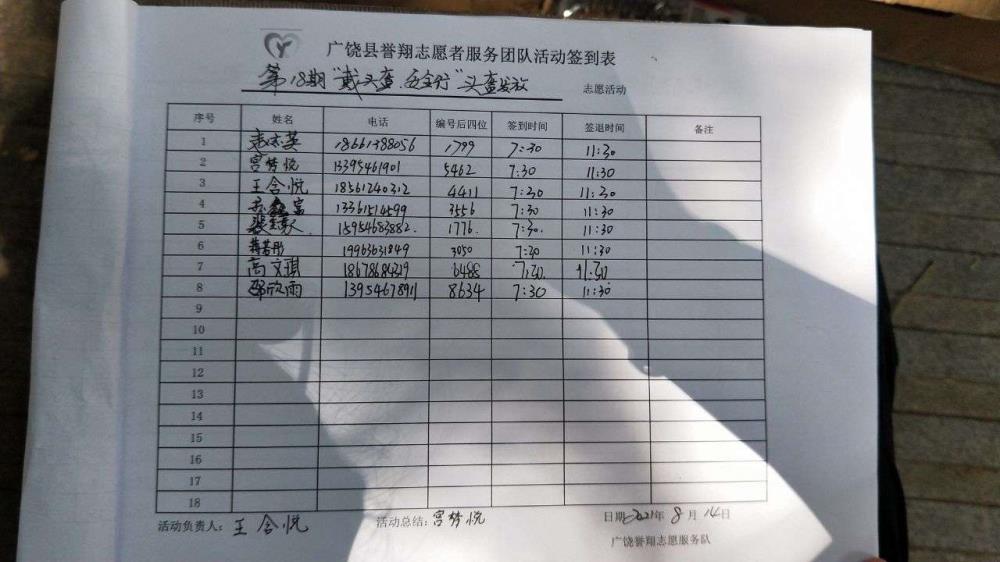 广饶县誉翔志愿者服务团队活动签到表
第18期“戴头盔.安全行”头盔发放 志愿活动
序号 姓名 电话 编号后四位 签到时间 签退时间 备注
1 英 18661388056 1799 7:30 11:30
2 宫梦悦 13395461901 5462 7:30 11:30
3 王含悦 18561240312 4411 7:30 11:30
4 13361514599 3556 7:30 11:30
5 15954683882. 1776. 7:30. 11:30
6 蒋若彤 19963631849 3050 7:30 11:30
7 高文琪 18678684319 6488 7:30. 11:30
8 邵欣雨 1395467891 8634 7:30 11:30
9
10
11
12
13
14
15
16
17
18
活动负责人：王含悦 活动总结：宫梦悦 日期 2021年 8 月 14日
广饶誉翔志愿服务队